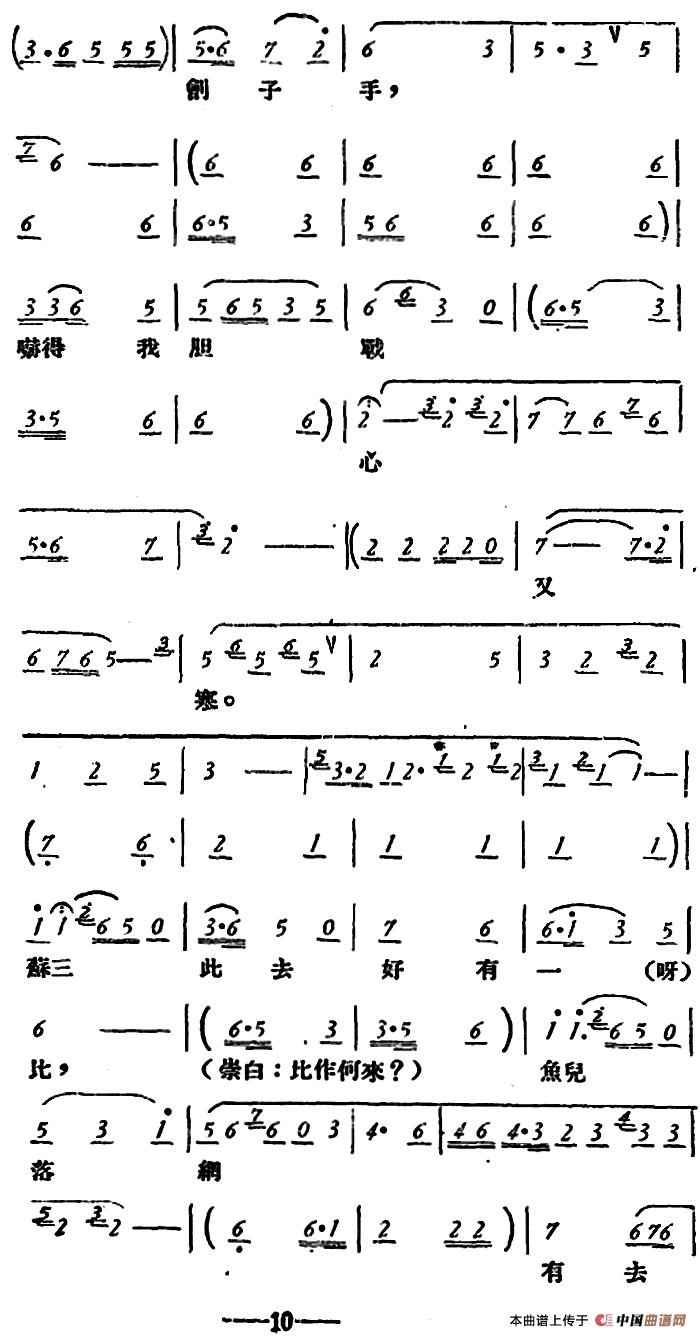 (3·6 5 5 5)| 5·6 7 2 | 6 3 | 5·3 V 5 |
劊 子 手，
7 6 —— |(6 6 | 6 6 | 6 6 |
6 6 | 6·5 3 | 5 6 6 | 6 6)|
3 3 6 5 | 5 6 5 3 5 | 6 6 3 0 |(6·5 3 |
嚇得 我 胆 戰
3·5 6 | 6 6)| 2 — 3 2 3 2 | 7 7 6 7 6 |
心
5·6 7 | 3 2 —— |(2 2 2 2 0 | 7 — 7·2 |
又
6 7 6 5 — 3 | 5 6 5 6 5 V | 2 5 | 3 2 3 2 |
寒。
1 2 5 | 3 —— | 5 3·2 1 2· 1 2 1 2 | 3 1 2 1 1 — |
(7 6 | 2 1 | 1 1 | 1 1)|
1 1 2 6 5 0 | 3·6 5 0 | 7 6 | 6·1 3 5 |
蘇三 此 去 好 有 一 （呀）
6 —— |(6·5 3 | 3·5 6)| 1 1· 2 6 5 0 |
比， （崇白：比作何來？） 魚兒
5 3 1 | 5 6 7 6 0 3 | 4· 6 | 4 6 4·3 2 3 4 3 3 |
落 網
5 2 3 2 — |(6 6·1 | 2 2 2)| 7 6 7 6 |
有 去
—10—
本曲谱上传于 中国曲谱网